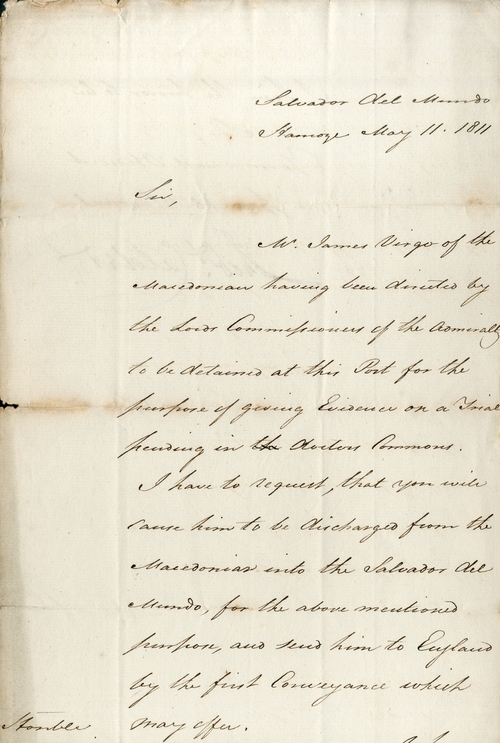 Salvador del Mundo
Hamoze May 11. 1811
Sir,
Mr. James Virgo of the
Macedonian having been directed by
the Lords Commissioners of the Admiralty
to be detained at this Port for the
purpose of giving Evidence on a Trial
pending in the Doctors Commons.
I have to request, that you will
cause him to be discharged from the
Macedonian into the Salvador del
Mundo, for the above mentioned
purpose, and send him to England
by the first Conveyance which
may offer.
Honble